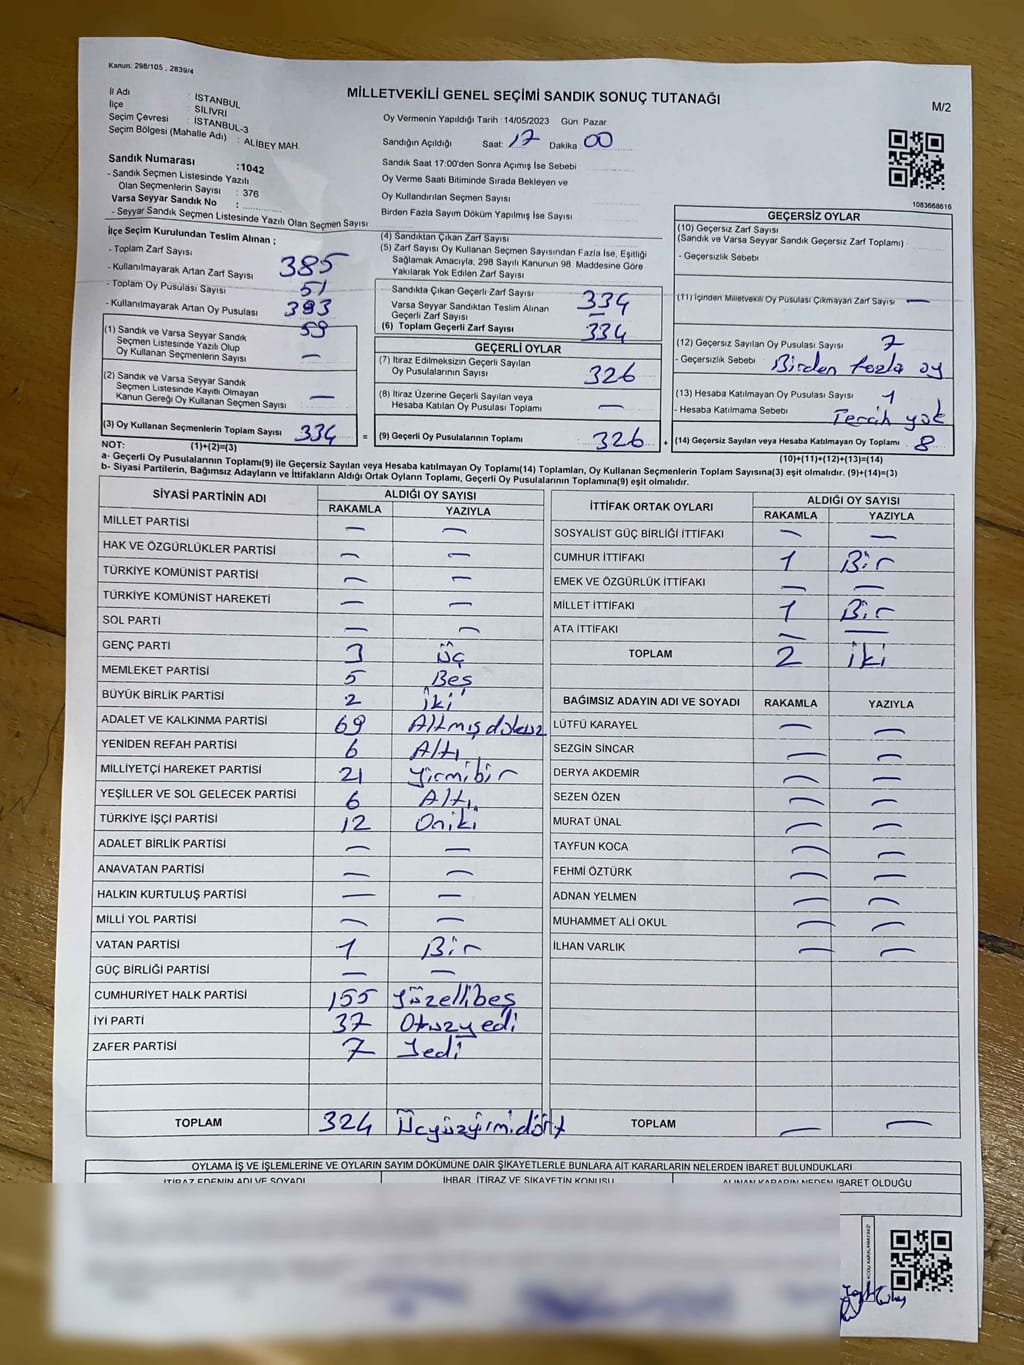 Kanun: 298/105 , 2839/4
MİLLETVEKİLİ GENEL SEÇİMİ SANDIK SONUÇ TUTANAĞI
M/2
İl Adı : İSTANBUL
İlçe : SİLİVRİ
Seçim Çevresi : İSTANBUL-3
Seçim Bölgesi (Mahalle Adı) : ALİBEY MAH.
Sandık Numarası :1042
- Sandık Seçmen Listesinde Yazılı
Olan Seçmenlerin Sayısı : 376
Varsa Seyyar Sandık No :
- Seyyar Sandık Seçmen Listesinde Yazılı Olan Seçmen Sayısı
Oy Vermenin Yapıldığı Tarih :14/05/2023 Gün Pazar
Sandığın Açıldığı Saat: 17 Dakika 00
Sandık Saat 17:00'den Sonra Açımış İse Sebebi
Oy Verme Saati Bitiminde Sırada Bekleyen ve
Oy Kullandırılan Seçmen Sayısı
Birden Fazla Sayım Döküm Yapılmış İse Sayısı
1083668616
İlçe Seçim Kurulundan Teslim Alınan ;
- Toplam Zarf Sayısı 385
- Kullanılmayarak Artan Zarf Sayısı 51
- Toplam Oy Pusulası Sayısı 393
- Kullanılmayarak Artan Oy Pusulası 59
(1) Sandık ve Varsa Seyyar Sandık
Seçmen Listesinde Yazılı Olup
Oy Kullanan Seçmenlerin Sayısı —
(2) Sandık ve Varsa Seyyar Sandık
Seçmen Listesinde Kayıtlı Olmayan
Kanun Gereği Oy Kullanan Seçmen Sayısı —
(3) Oy Kullanan Seçmenlerin Toplam Sayısı 334 =
(4) Sandıktan Çıkan Zarf Sayısı
(5) Zarf Sayısı Oy Kullanan Seçmen Sayısından Fazla İse, Eşitliği
Sağlamak Amacıyla, 298 Sayılı Kanunun 98. Maddesine Göre
Yakılarak Yok Edilen Zarf Sayısı
Sandıkta Çıkan Geçerli Zarf Sayısı 334
Varsa Seyyar Sandıktan Teslim Alınan
Geçerli Zarf Sayısı —
(6) Toplam Geçerli Zarf Sayısı 334
GEÇERLİ OYLAR
(7) İtiraz Edilmeksizin Geçerli Sayılan
Oy Pusulalarının Sayısı 326
(8) İtiraz Üzerine Geçerli Sayılan veya
Hesaba Katılan Oy Pusulası Toplamı —
(9) Geçerli Oy Pusulalarının Toplamı 326 +
GEÇERSİZ OYLAR
(10) Geçersiz Zarf Sayısı
(Sandık ve Varsa Seyyar Sandık Geçersiz Zarf Toplamı)
- Geçersizlik Sebebi
(11) İçinden Milletvekili Oy Pusulası Çıkmayan Zarf Sayısı —
(12) Geçersiz Sayılan Oy Pusulası Sayısı 7
- Geçersizlik Sebebi Birden fazla oy
(13) Hesaba Katılmayan Oy Pusulası Sayısı 1
- Hesaba Katılmama Sebebi Tercih yok
(14) Geçersiz Sayılan veya Hesaba Katılmayan Oy Toplamı 8
NOT: (1)+(2)=(3)
(10)+(11)+(12)+(13)=(14)
a- Geçerli Oy Pusulalarının Toplamı(9) ile Geçersiz Sayılan veya Hesaba katılmayan Oy Toplamı(14) Toplamları, Oy Kullanan Seçmenlerin Toplam Sayısına(3) eşit olmalıdır. (9)+(14)=(3)
b- Siyasi Partilerin, Bağımsız Adayların ve İttifakların Aldığı Ortak Oyların Toplamı, Geçerli Oy Pusulalarının Toplamına(9) eşit olmalıdır.
SİYASİ PARTİNİN ADI ALDIĞI OY SAYISI
RAKAMLA YAZIYLA
MİLLET PARTİSİ — —
HAK VE ÖZGÜRLÜKLER PARTİSİ — —
TÜRKİYE KOMÜNİST PARTİSİ — —
TÜRKİYE KOMÜNİST HAREKETİ — —
SOL PARTİ — —
GENÇ PARTİ 3 Üç
MEMLEKET PARTİSİ 5 Beş
BÜYÜK BİRLİK PARTİSİ 2 İki
ADALET VE KALKINMA PARTİSİ 69 Altmışdokuz
YENİDEN REFAH PARTİSİ 6 Altı
MİLLİYETÇİ HAREKET PARTİSİ 21 Yirmibir
YEŞİLLER VE SOL GELECEK PARTİSİ 6 Altı
TÜRKİYE İŞÇİ PARTİSİ 12 Oniki
ADALET BİRLİK PARTİSİ — —
ANAVATAN PARTİSİ — —
HALKIN KURTULUŞ PARTİSİ — —
MİLLİ YOL PARTİSİ — —
VATAN PARTİSİ 1 Bir
GÜÇ BİRLİĞİ PARTİSİ — —
CUMHURİYET HALK PARTİSİ 155 Yüzellibeş
İYİ PARTİ 37 Otuzyedi
ZAFER PARTİSİ 7 Yedi
TOPLAM 324 Üçyüzyirmidört
İTTİFAK ORTAK OYLARI ALDIĞI OY SAYISI
RAKAMLA YAZIYLA
SOSYALİST GÜÇ BİRLİĞİ İTTİFAKI — —
CUMHUR İTTİFAKI 1 Bir
EMEK VE ÖZGÜRLÜK İTTİFAKI — —
MİLLET İTTİFAKI 1 Bir
ATA İTTİFAKI — —
TOPLAM 2 iki
BAĞIMSIZ ADAYIN ADI VE SOYADI RAKAMLA YAZIYLA
LÜTFÜ KARAYEL — —
SEZGİN SİNCAR — —
DERYA AKDEMİR — —
SEZEN ÖZEN — —
MURAT ÜNAL — —
TAYFUN KOCA — —
FEHMİ ÖZTÜRK — —
ADNAN YELMEN — —
MUHAMMET ALİ OKUL — —
İLHAN VARLIK — —
TOPLAM — —
OYLAMA İŞ VE İŞLEMLERİNE VE OYLARIN SAYIM DÖKÜMÜNE DAİR ŞİKAYETLERLE BUNLARA AİT KARARLARIN NELERDEN İBARET BULUNDUKLARI
İTİRAZ EDENİN ADI VE SOYADI İHBAR, İTİRAZ VE ŞİKAYETİN KONUSU ALINAN KARARIN NEDEN İBARET OLDUĞU